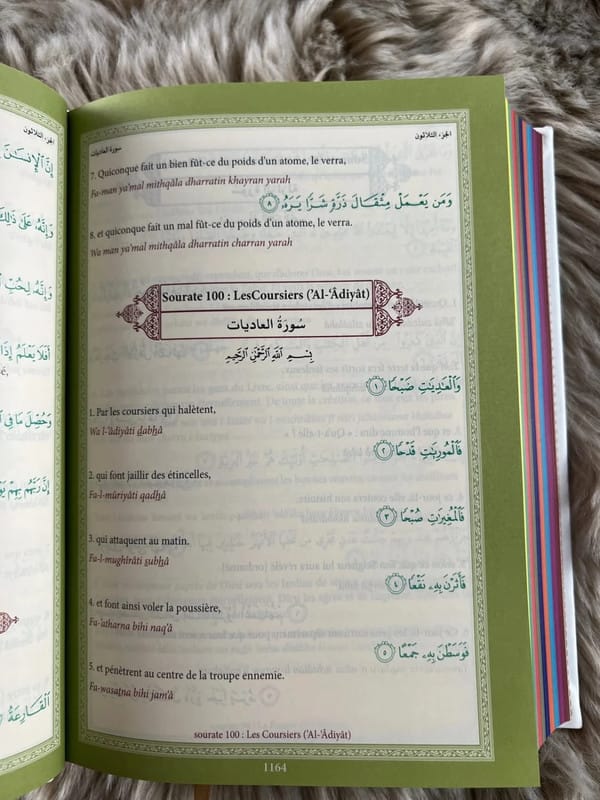 سورة العاديات
الجزء الثلاثون
7. Quiconque fait un bien fût-ce du poids d'un atome, le verra,
Fa-man ya'mal mithqâla dharratin khayran yarah
وَمَن يَعْمَلْ مِثْقَالَ ذَرَّةٍ شَرًّا يَرَهُۥ ٨
8. et quiconque fait un mal fût-ce du poids d'un atome, le verra.
Wa man ya'mal mithqâla dharratin charran yarah
Sourate 100 : LesCoursiers ('Al-'Âdiyât)
سُورَةُ العاديات
بِسْمِ ٱللَّهِ ٱلرَّحْمَٰنِ ٱلرَّحِيمِ
وَٱلْعَٰدِيَٰتِ ضَبْحًا ١
1. Par les coursiers qui halètent,
Wa l-'âdiyâti dabhâ
فَٱلْمُورِيَٰتِ قَدْحًا ٢
2. qui font jaillir des étincelles,
Fa-l-mûriyâti qadhâ
فَٱلْمُغِيرَٰتِ صُبْحًا ٣
3. qui attaquent au matin.
Fa-l-mughîrâti subhâ
فَأَثَرْنَ بِهِۦ نَقْعًا ٤
4. et font ainsi voler la poussière,
Fa-'atharna bihi naq'â
فَوَسَطْنَ بِهِۦ جَمْعًا ٥
5. et pénètrent au centre de la troupe ennemie.
Fa-wasatna bihi jam'â
sourate 100 : Les Coursiers ('Al-'Âdiyât)
1164